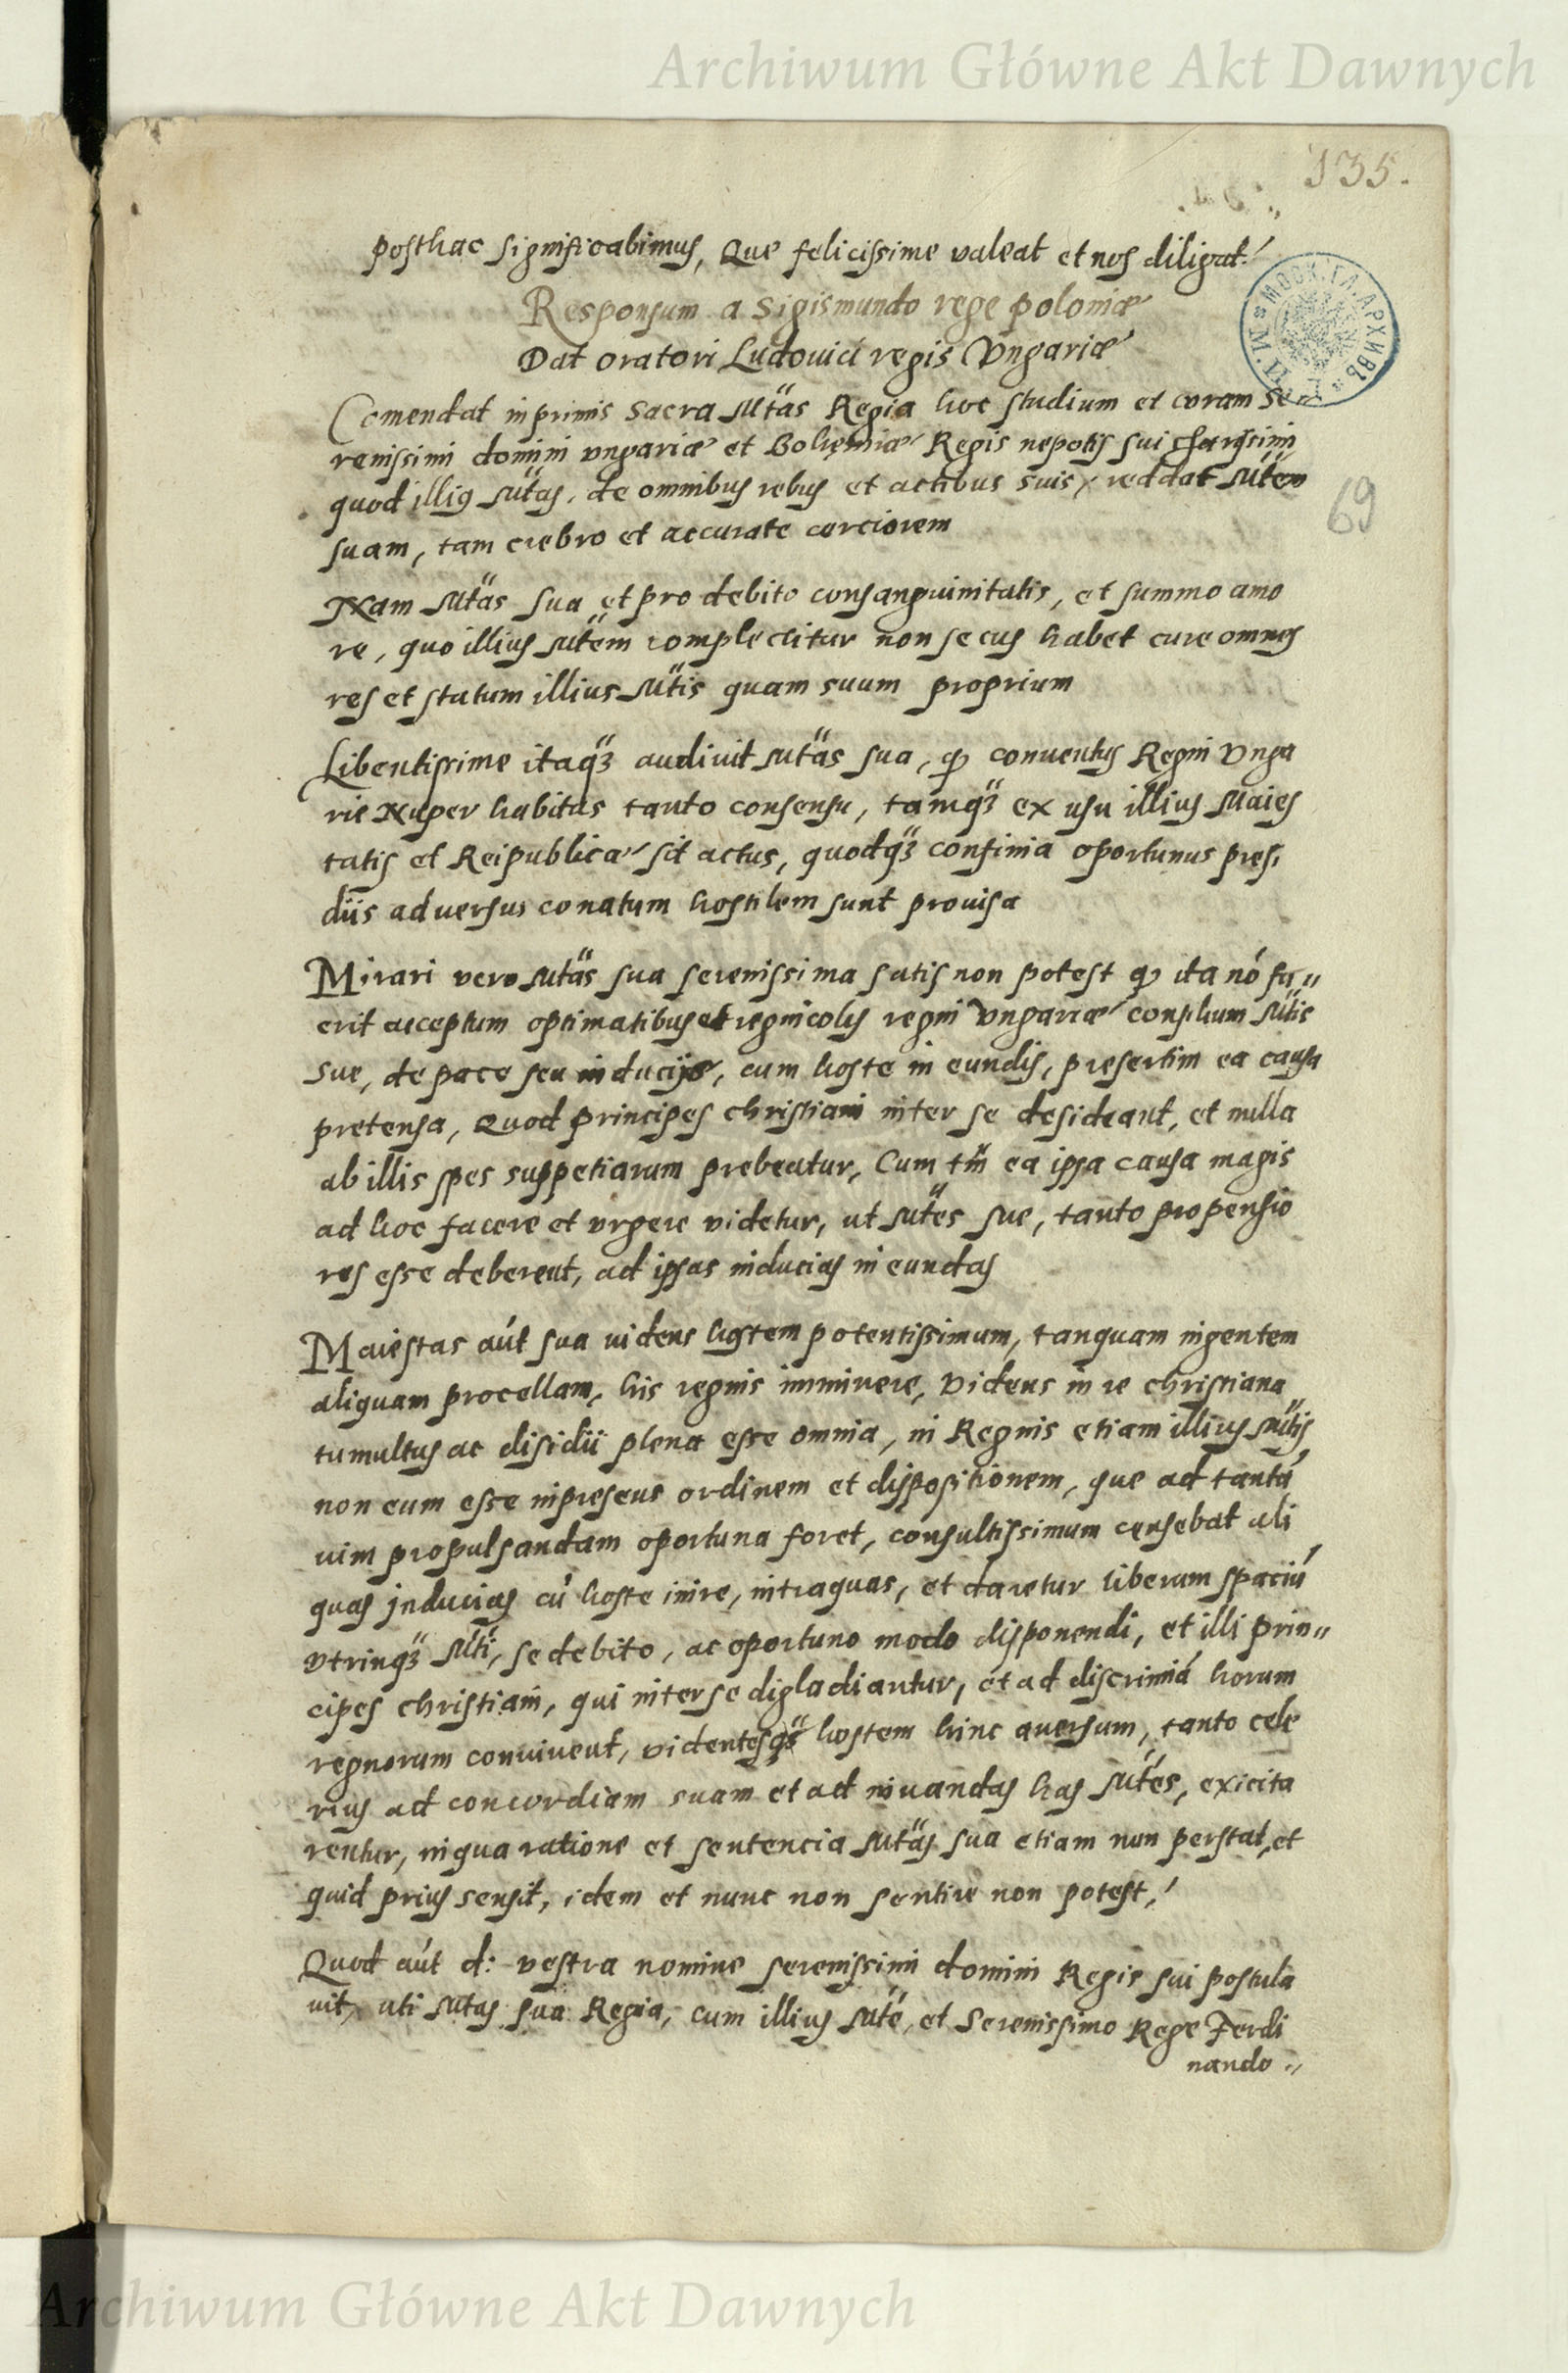 Archiwum Główne Akt Dawnych
135.
posthac significabimus, Que felicissime valeat et nos diligat.
Responsum a Sigismundo rege poloniæ
Dat oratori Ludouici regis Vngariæ
Comendat inprimis Sacra Mtas Regia hoc studium et curam Se„
renissimi domini vngariæ et Bohemiæ Regis nepotis sui charissimi
quod illius Mtas, de omnibus rebus et actibus suis, reddat Mtem
69
suam, tam crebro et accurate cerciorem
Nam Mtas sua et pro debito consanguinitatis, et summo amo
re, quo illius Mtem complectitur non secus habet cure omnes
res et statum illius Mtis quam suum proprium
Libentissime itaqʒ audiuit Mtas sua, ꝙ conuentus Regni Vnga
rie Nuper habitus tanto consensu, tamqʒ ex usu illius Maies
tatis et Reipublicæ sit actus, quodqʒ confinia oportunus presi
diis aduersus conatum hostilem sunt prouisa
Mirari vero Mtas sua serenissima satis non potest ꝙ ita nó fu„
erit acceptum optimatibus et regnicolis regni Vngariæ consilium Mtis
sue, de pace seu inducijs, cum hoste in eundis, presertim ea causa
pretensa, Quod principes christiani inter se desideant, et nulla
ab illis spes suppetiarum prebeatur, Cum tm̃ ea ipsa causa magis
ad hoc facere et vrgere videtur, ut Mtes sue, tanto propensio
res esse deberent, ad ipsas inducias in eundas
Maiestas aút sua uidens hostem potentissimum, tanquam ingentem
aliquam procellam, his regnis imminere, Videns in re christiana
tumultus ac disidii plena esse omnia, in Regnis etiam illius Mtis
non eum esse inpresens ordinem et dispositionem, que ad tantá
uim propulsandam oportuna foret, consultissimum censebat ali
quas inducias cú hoste inire, intraquas, et daretur liberum spaciú
vtrinqʒ Mti, se debito, ac oportuno modo disponendi, et illi prin„
cipes christiani, qui inter se digladiantur, et ad discriminá horum
regnorum conniuent, videntesqʒ hostem hinc auersum, tanto cele
rius ad concordiam suam et ad iuuandas has Mtes, exicita
rentur, inqua ratione et sentencia Mtas sua etiam nun perstat, et
quid prius sensit, idem et nunc non sentire non potest,
Quod aút d: vestra nomine serenissimi domini Regis sui postula
uit, uti Mtas sua Regia, cum illius Mte, et Serenissimo Rege Ferdi
nando „
Archiwum Główne Akt Dawnych